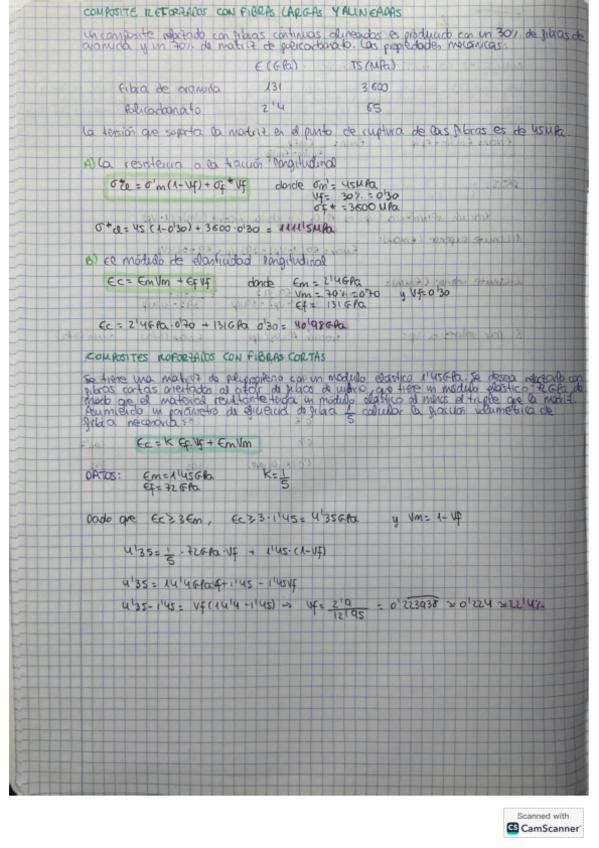 COMPOSITE REFORZADOS CON FIBRAS LARGAS Y ALINEADAS
Un composite reforzado con fibras continuas alineadas es producido con un 30% de fibras de
aramida y un 70% de matriz de policarbonato. Las propiedades mecánicas:
E(GPa) TS(MPa)
Fibra de aramida 131 3600
Policarbonato 2'4 65
La tensión que soporta la matriz en el punto de ruptura de las fibras es de 45MPa.
A) La resistencia a la tracción longitudinal
σ*cl = σ'm(1-Vf) + σf* Vf donde σm' = 45MPa
Vf = 30% = 0'30
σf* = 3600 MPa
σ*cl = 45 (1-0'30) + 3600·0'30 = 1111'5MPa
B) El módulo de elasticidad longitudinal
Ec = EmVm + EfVf donde Em = 2'4GPa
Vm = 70% = 0'70 y Vf = 0'30
Ef = 131GPa
Ec = 2'4GPa·0'70 + 131GPa 0'30 = 40'98GPa
COMPOSITES REFORZADOS CON FIBRAS CORTAS
Se tiene una matriz de polipropileno con un módulo elástico 1'45GPa. Se desea reforzarlo con
fibras cortas orientadas al azar de fibras de vidrio, que tiene un módulo elástico 72GPa, de
modo que el material resultante tenga un módulo elástico al menos el triple que la matriz.
Asumiendo un parámetro de eficiencia de fibra 1/5 calcular la fracción volumétrica de
fibra necesaria:
Ec = K Ef Vf + EmVm
DATOS: Em = 1'45GPa K = 1/5
Ef = 72GPa
Dado que Ec ≥ 3Em, Ec ≥ 3·1'45 = 4'35GPa y Vm = 1 - Vf
4'35 = 1/5 · 72GPa·Vf + 1'45·(1-Vf)
4'35 = 14'4GPa·f + 1'45 - 1'45Vf
4'35 - 1'45 = Vf(14'4 - 1'45) → Vf = 2'9/12'95 = 0'223938 ≈ 0'224 ≈ 22'4%
Scanned with
CS CamScanner